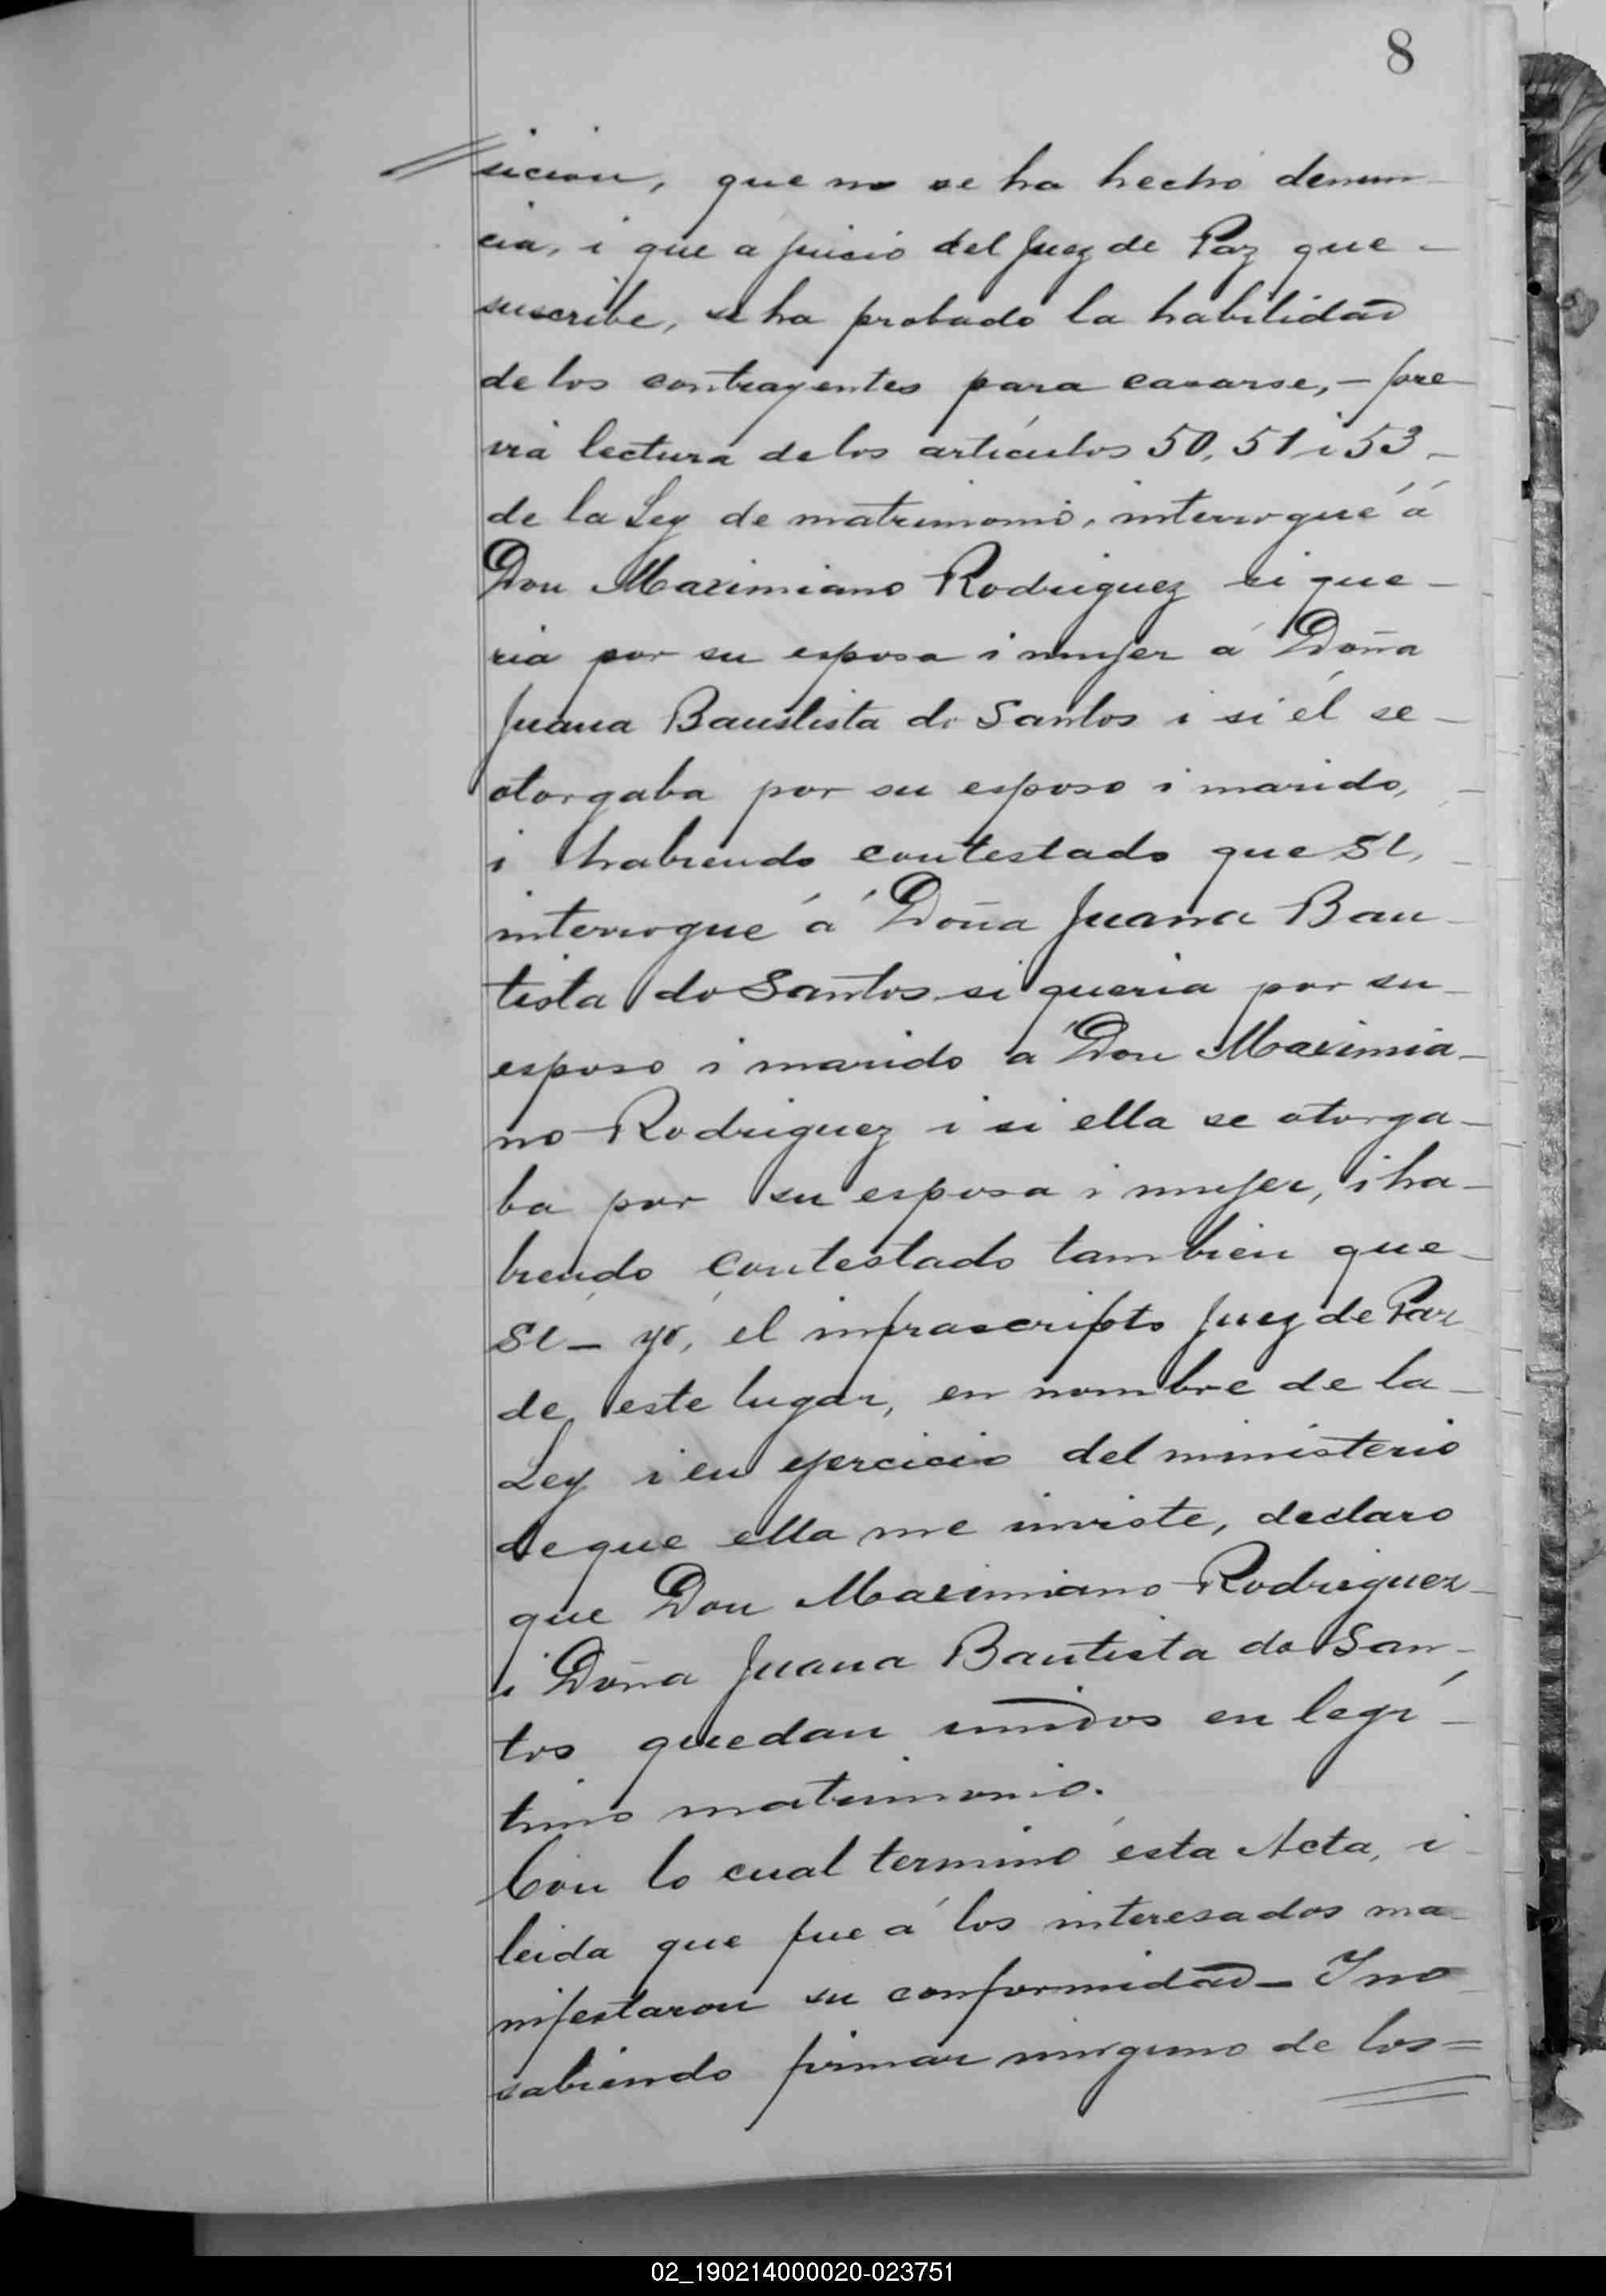 8
sicion, que no se ha hecho denun
cia, i que a juicio del Juez de Paz que –
suscribe, se ha probado la habilidad
de los contrayentes para casarse, – pre
via lectura de los artículos 50, 51 i 53 –
de la Ley de matrimonio, interrogué á
Don Maximiano Rodriguez si que –
ria por su esposa i mujer á Doña
Juana Baustista do Santos i si él se –
otorgaba por su esposo i marido,
i habiendo contestado que SI,
interrogué á Doña Juana Bau
tista do Santos si queria por su –
esposo i marido a Don Maximia –
no Rodriguez i si ella se otorga –
ba por su esposa i mujer, i ha –
biendo contestado tambien que –
SI – yo, el infrascripto Juez de Paz
de este lugar, en nombre de la –
Ley i en ejercicio del ministerio
de que ella me inviste, declaro
que Don Maximiano Rodriguez –
i Doña Juana Bautista do San –
tos quedan unidos en legí –
timo matrimonio.
Con lo cual terminó esta Acta, i
leida que fue á los interesados ma
nifestaron su conformidad – I no
sabiendo firmar ninguno de los =
02_190214000020-023751